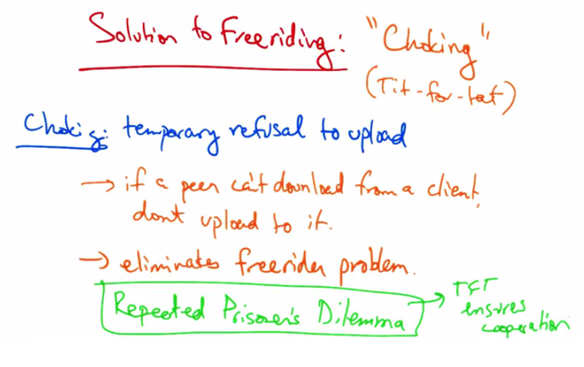 Solution to Freeriding: "Choking"
(Tit-for-tat)
Choking: temporary refusal to upload
→ if a peer can't download from a client,
don't upload to it.
→ eliminates freerider problem.
Repeated Prisoner's Dilemma → TFT
ensures
cooperation